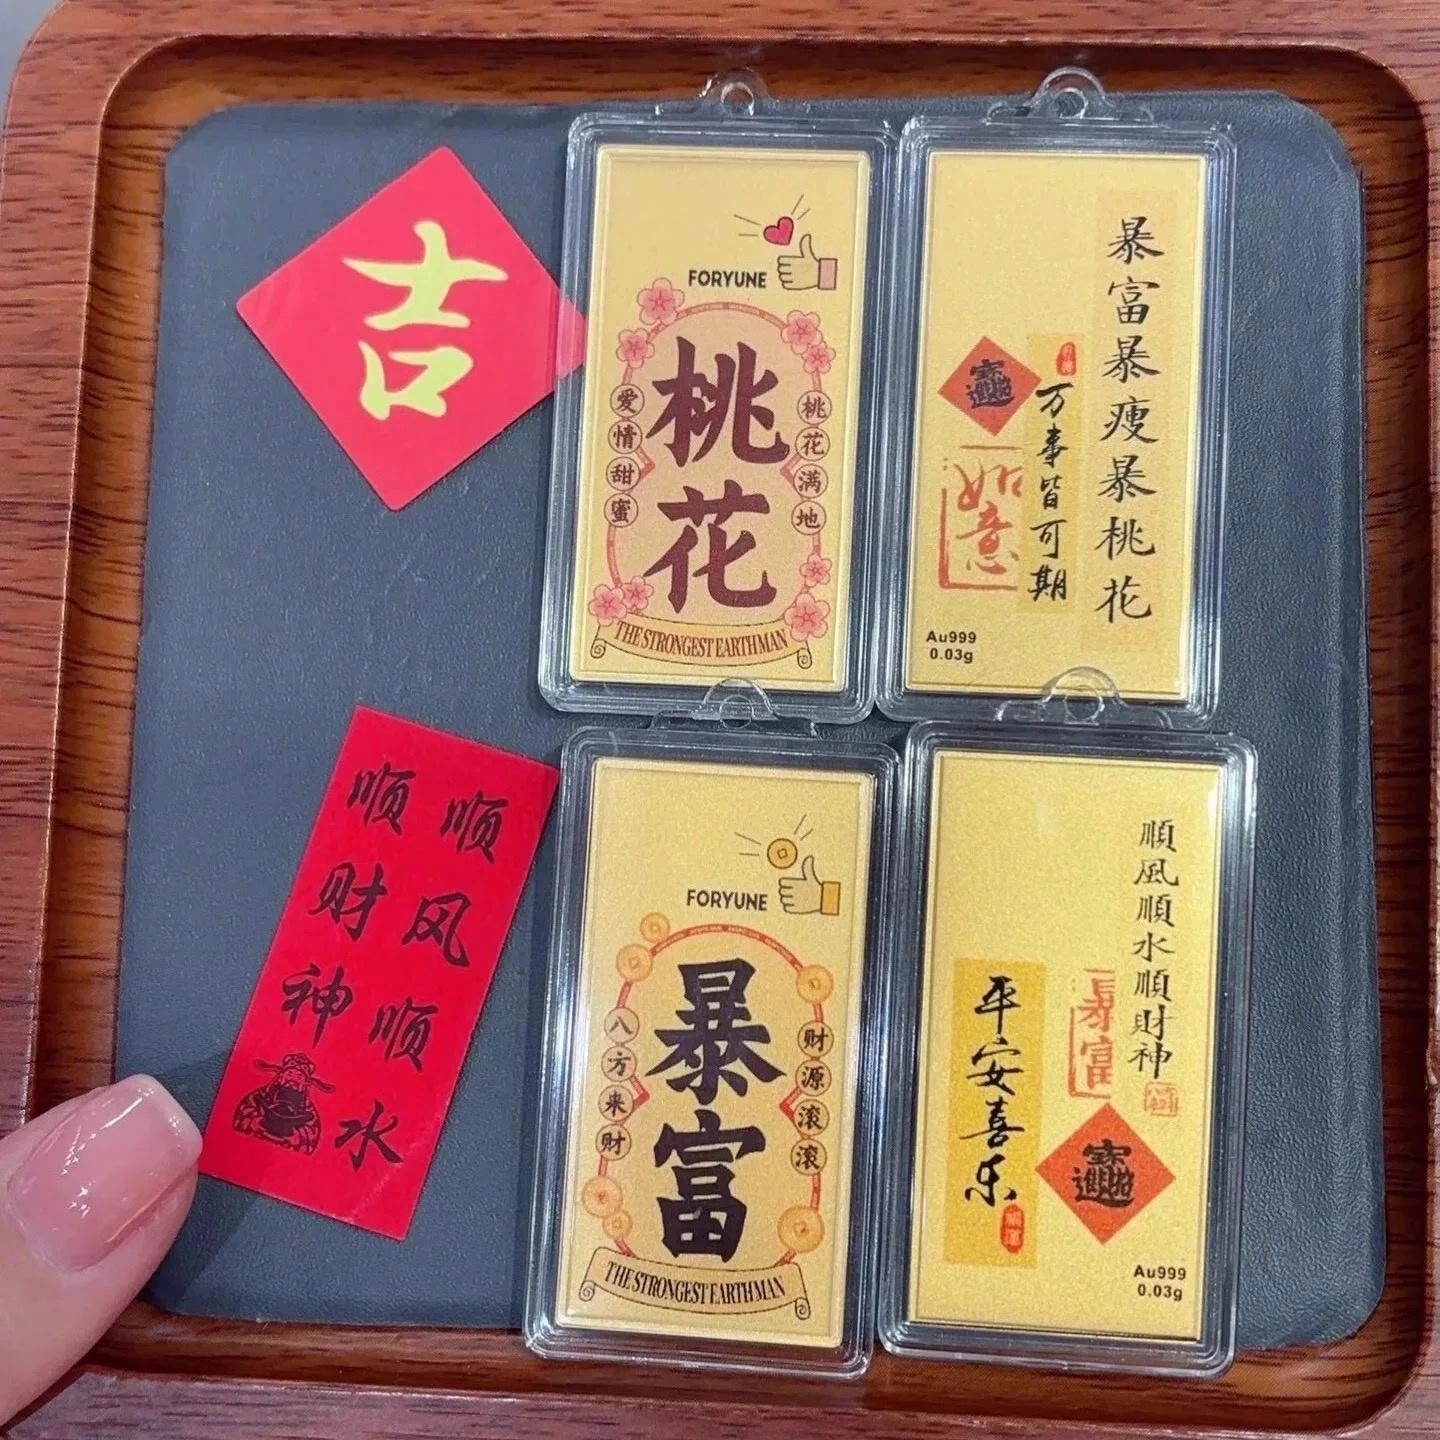 吉
顺风顺水
顺财神
FORYUNE
桃花
爱情甜蜜
桃花满地
THE STRONGEST EARTHMAN
暴富暴瘦暴桃花
万事皆可期
招財進寶
如意
Au999
0.03g
FORYUNE
暴富
八方来财
财源滚滚
THE STRONGEST EARTHMAN
順風順水順財神
暴富
平安喜乐
順運
招財進寶
Au999
0.03g